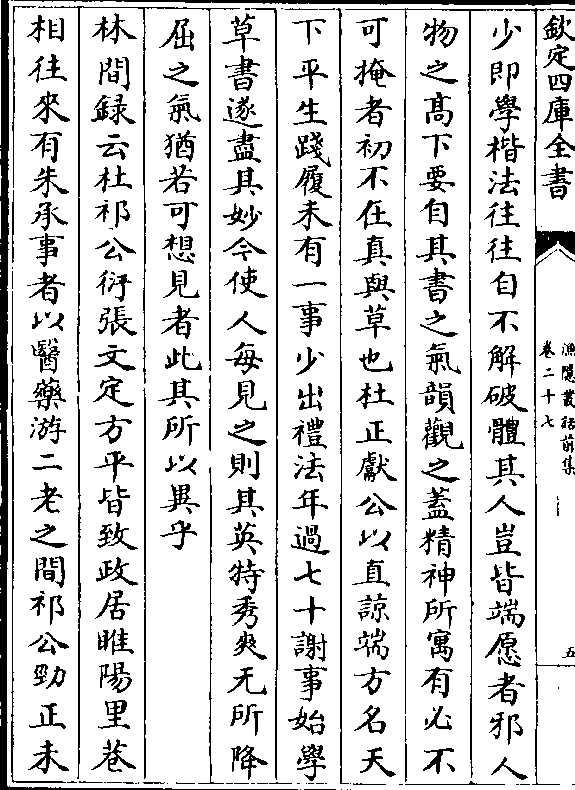 欽定四庫全書
漁隱叢話前集
卷二十七
五
少即學楷法往往自不解破體其人豈皆端愿者邪人
物之髙下要自其書之氣韻觀之葢精神所寓有必不
可掩者初不在真與草也杜正獻公以直諒端方名天
下平生踐履未有一事少出禮法年過七十謝事始學
草書遂盡其妙今使人每見之則其英特秀爽无所降
屈之氣猶若可想見者此其所以異乎
林間録云杜祁公衍張文定方平皆致政居睢陽里巷
相往來有朱承事者以醫藥游二老之間祁公勁正未